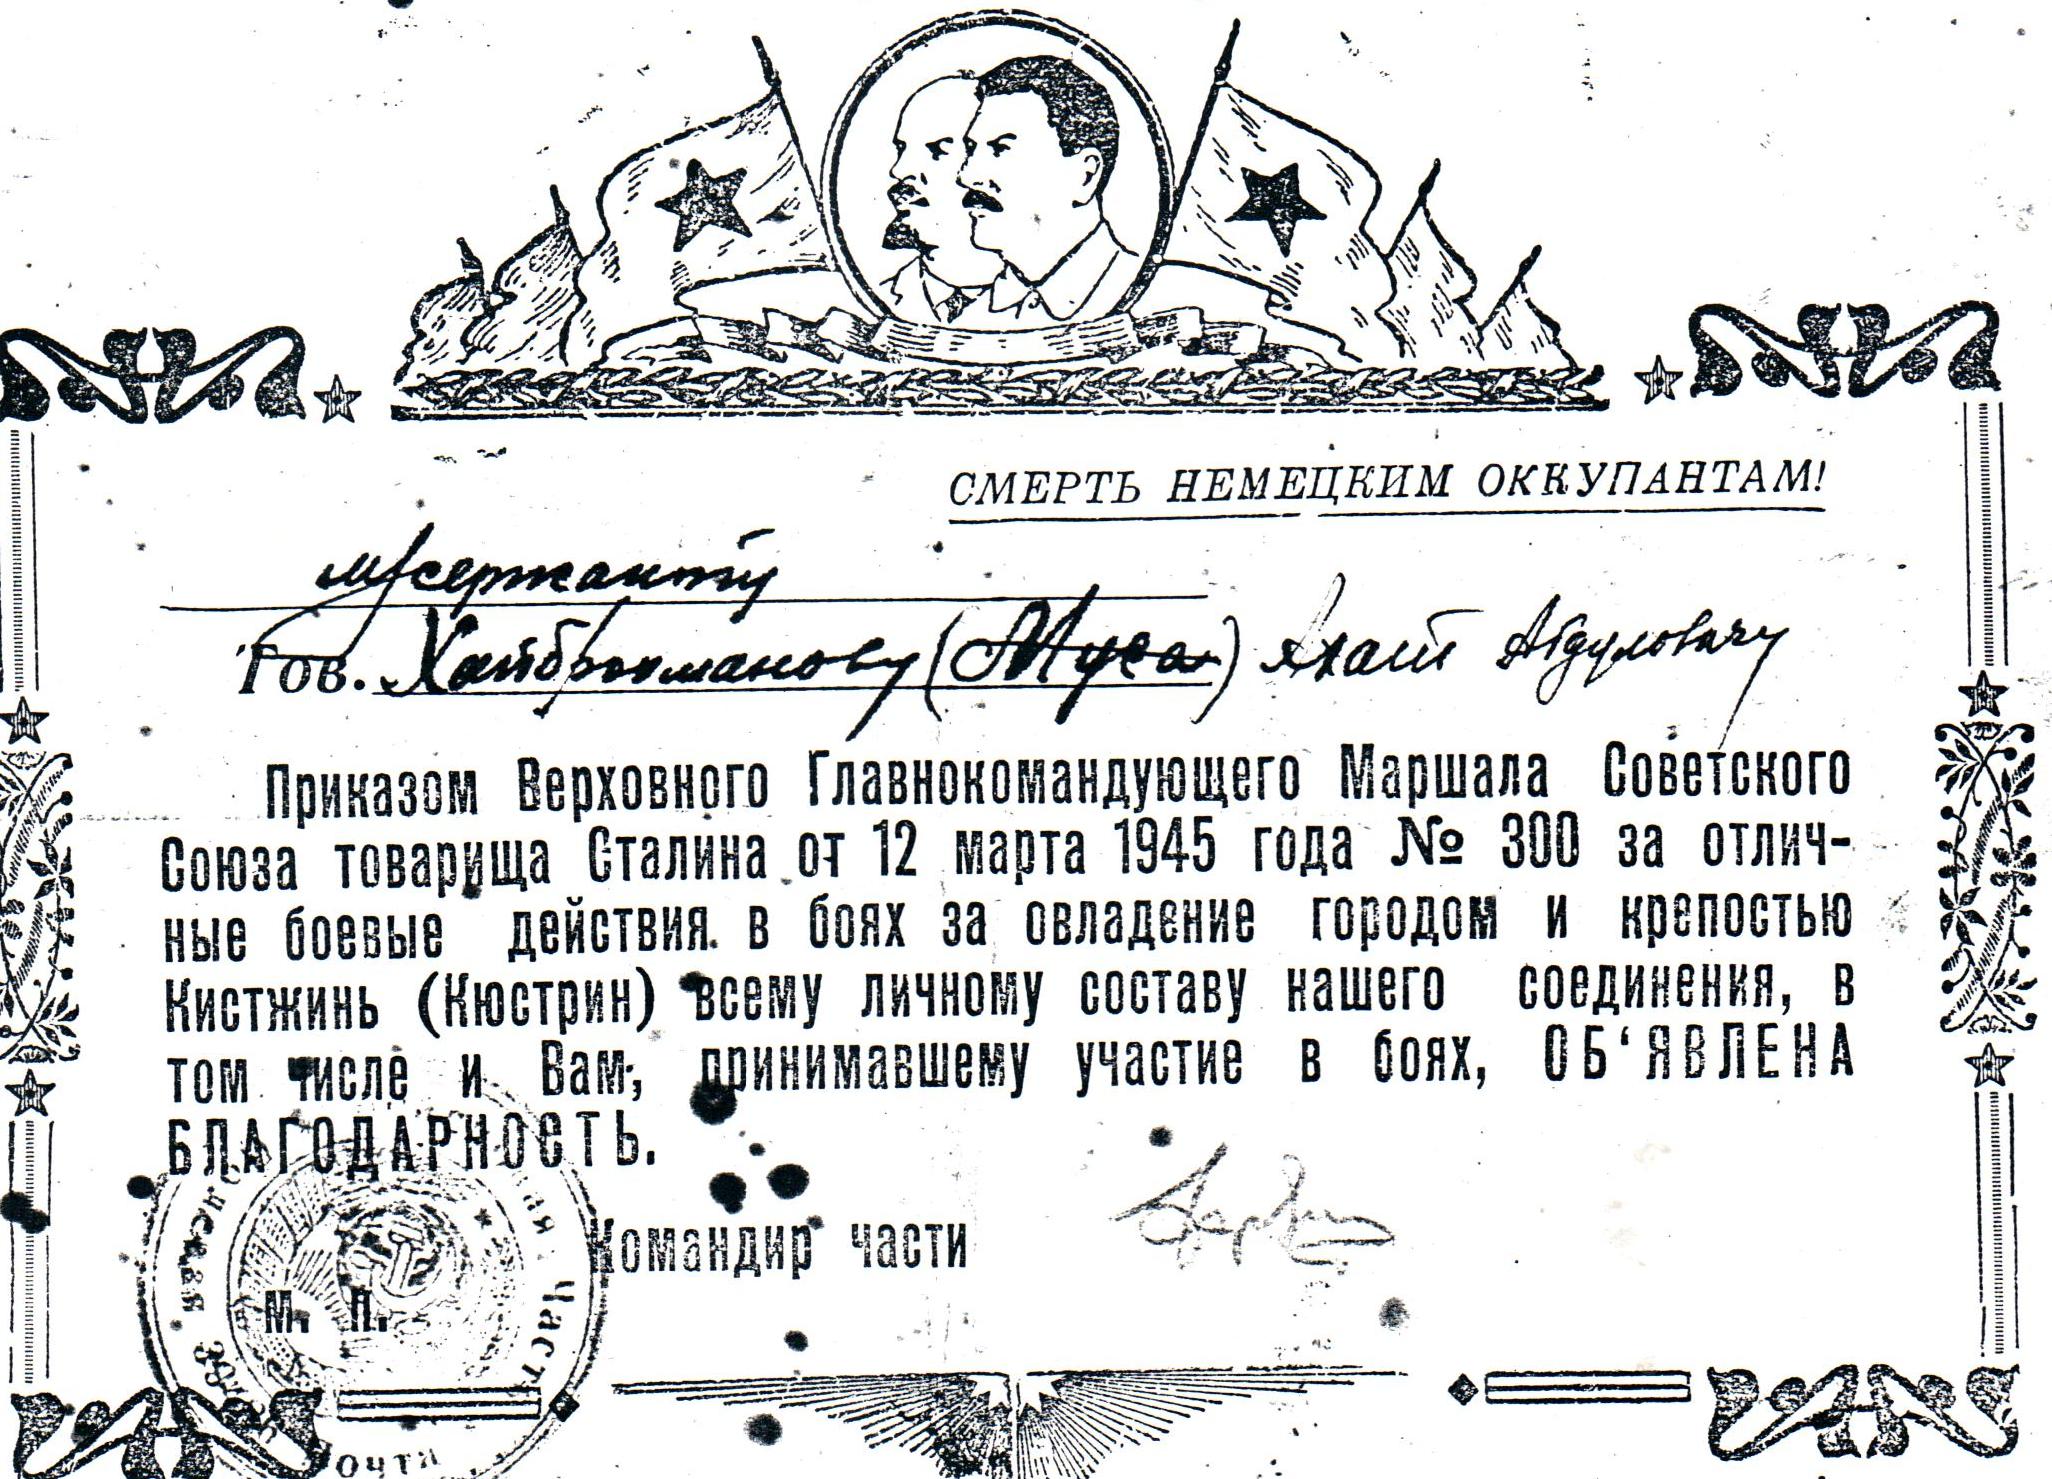 СМЕРТЬ НЕМЕЦКИМ ОККУПАНТАМ!
м/сержанту
Тов. Хайбрахманову (Муса) Яхаит Абдуловичу
Приказом Верховного Главнокомандующего Маршала Советского
Союза товарища Сталина от 12 марта 1945 года № 300 за отлич-
ные боевые действия в боях за овладение городом и крепостью
Кистжинь (Кюстрин) всему личному составу нашего соединения, в
том числе и Вам, принимавшему участие в боях, ОБ‘ЯВЛЕНА
БЛАГОДАРНОСТЬ.
Командир части
М. П.
Часть
почта